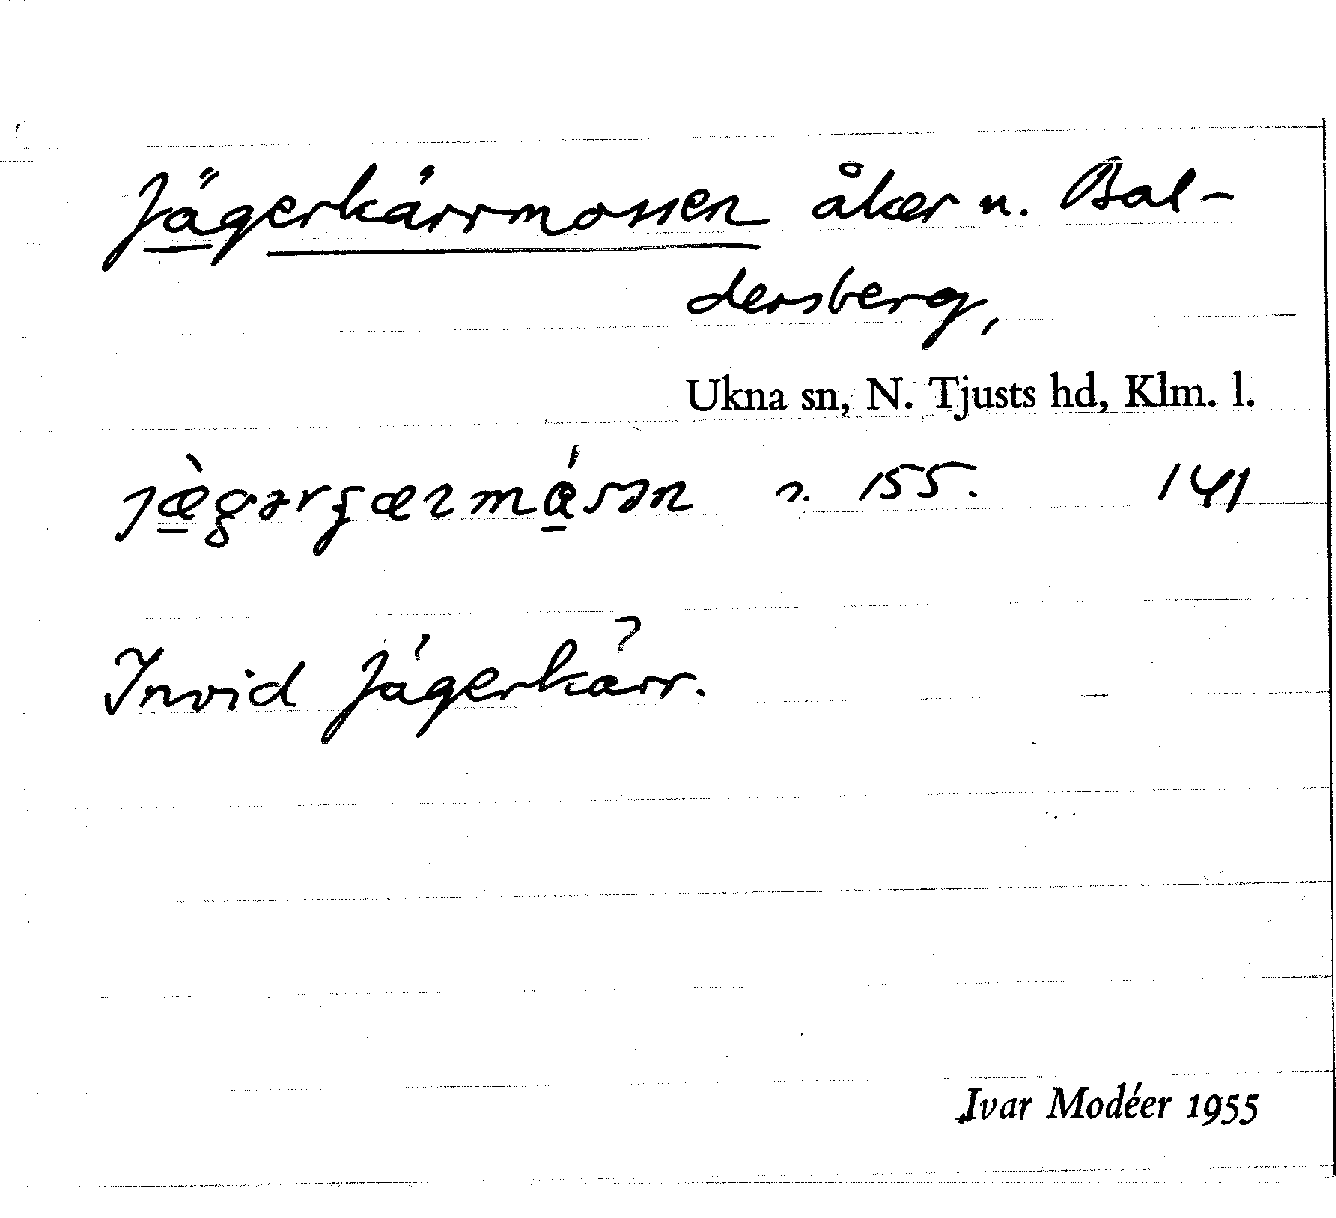 Jägerkärrmossen åker n. Bal-
dersberg,
Ukna sn, N. Tjusts hd, Klm. l.
s. 155. 141
Invid Jägerkärr.
Ivar Modéer 1955